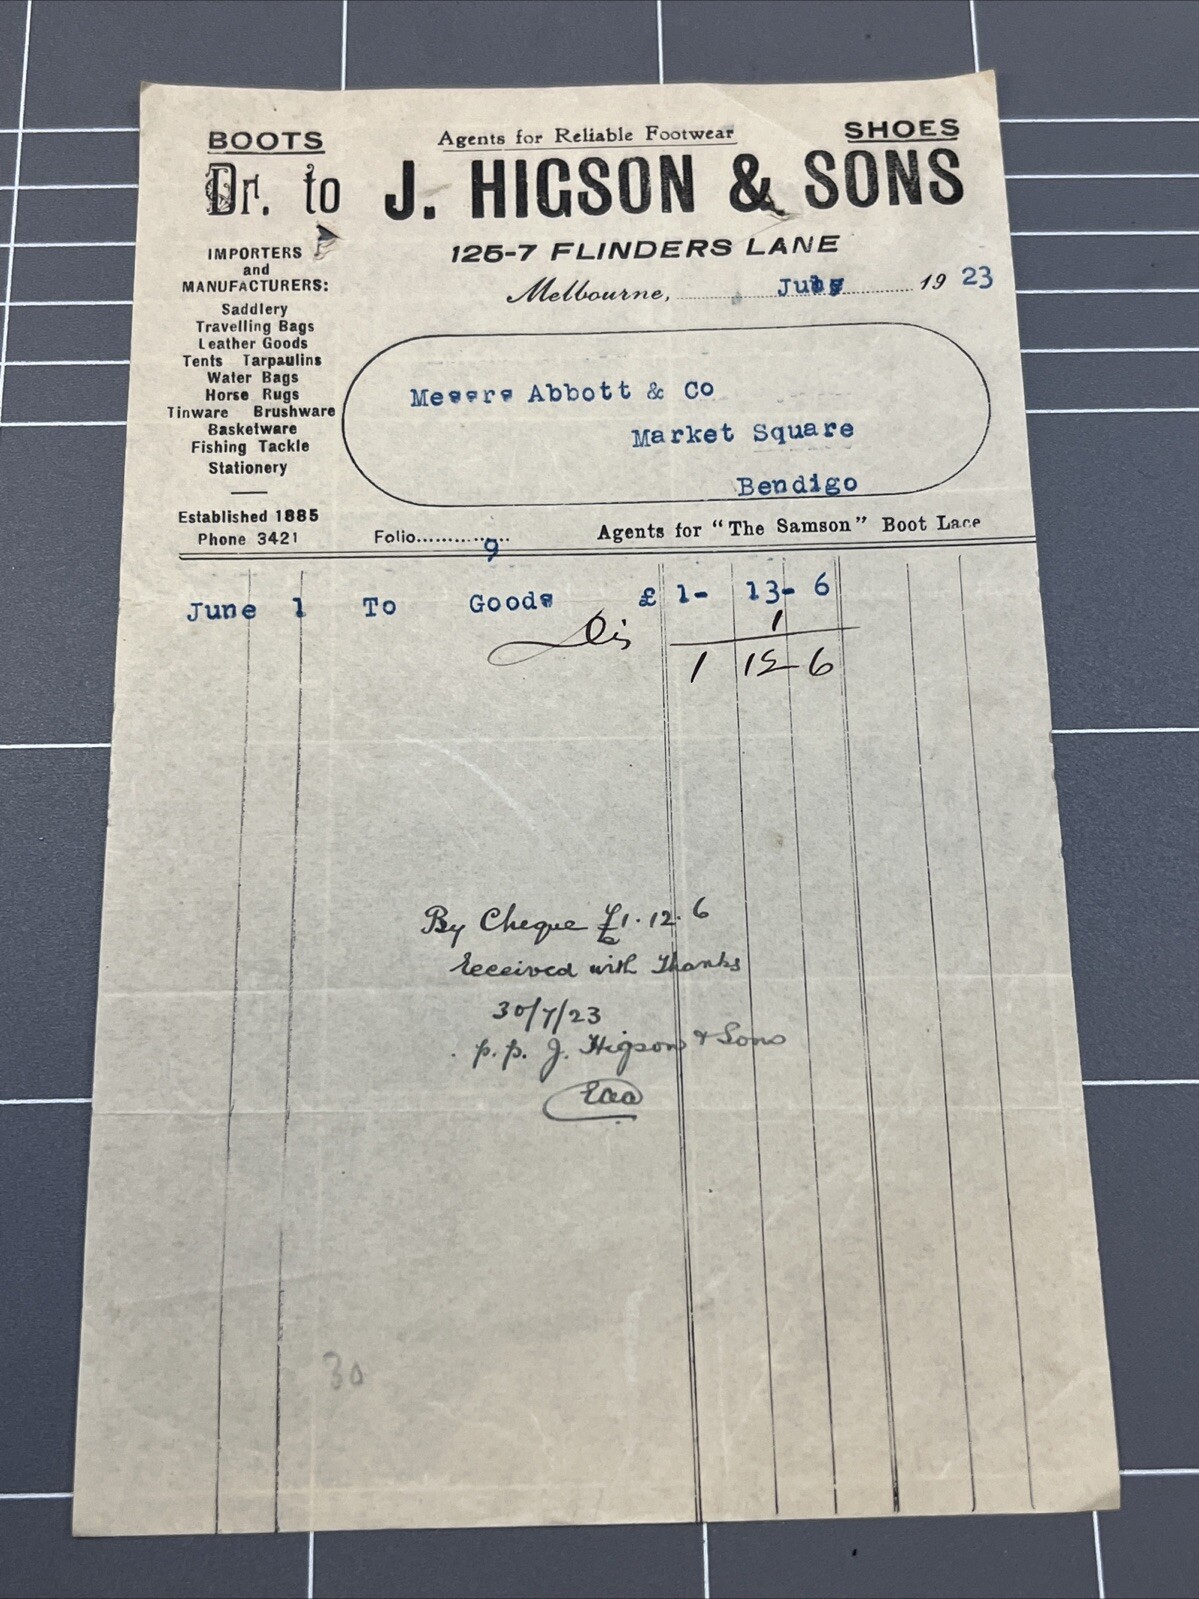 BOOTS Agents for Reliable Footwear SHOES
Dr. to J. HIGSON & SONS
125-7 FLINDERS LANE
Melbourne, July 1923
IMPORTERS
and
MANUFACTURERS:
Saddlery
Travelling Bags
Leather Goods
Tents Tarpaulins
Water Bags
Horse Rugs
Tinware Brushware
Basketware
Fishing Tackle
Stationery
Established 1885
Phone 3421
Messrs Abbott & Co
Market Square
Bendigo
Folio............... 9
Agents for "The Samson" Boot Lace
June 1 To Goods £ 1- 13- 6
Dis 1
1 12 6
By Cheque £1.12.6
received with Thanks
30/7/23
p.p. J. Higson & Sons
30